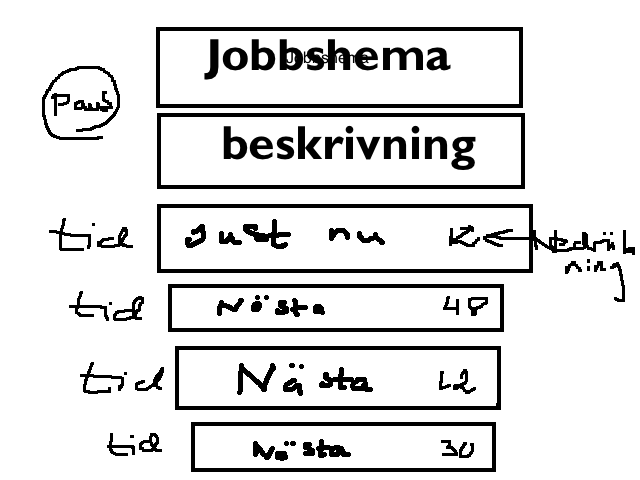 Jobbshema
Jobbshema
Paus
beskrivning
tid Just nu 12 Nedräk
ning
tid Nästa 48
tid Nästa 42
tid Nästa 30